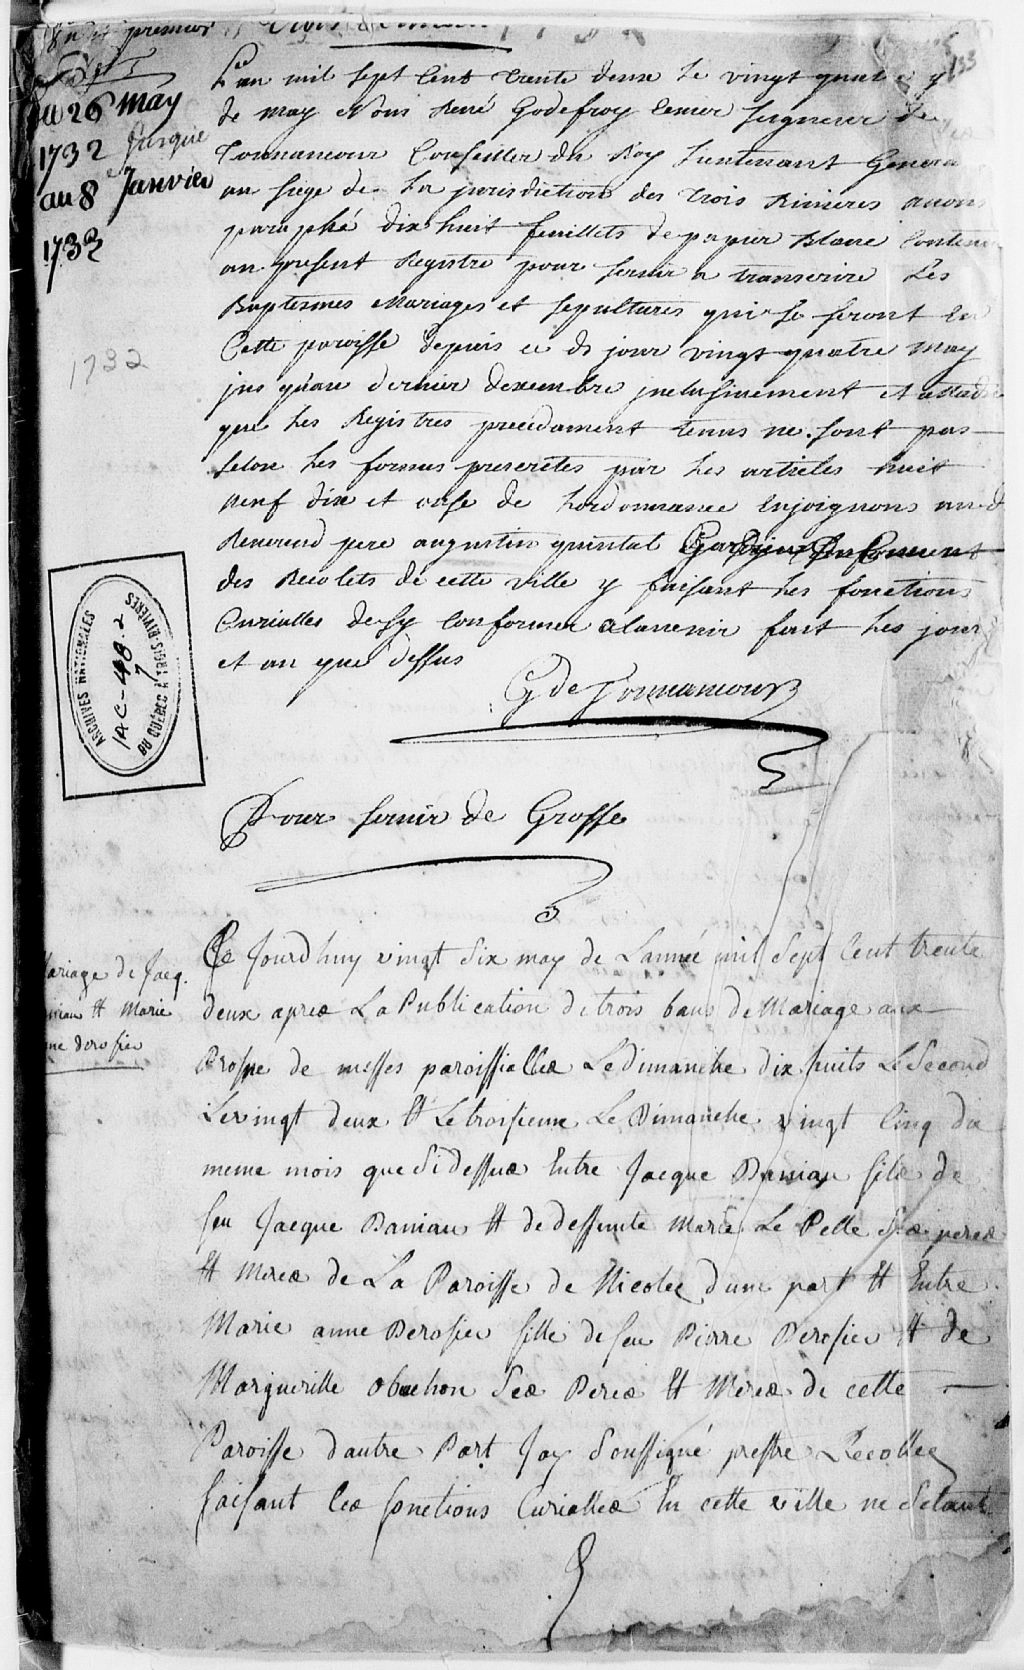 premier
Du 26 May
1732 Jusque
au 8e Janvier
1733
1732
133
L'an mil sept Cent trente deux Le vingt quat
de may Nous René Godefroy Ecuier seigneur de
Tonnancour Conseiller du Roy Lieutenant General
au siege de La jurisdiction des trois Rivieres avons
paraphé dix huit feuillets de papier Blanc Contenu
au present Registre pour servir a transcrire Les
Baptesmes Mariages et sepultures qui se feront En
Cette paroisse depuis ce dt jour vingt quatre may
jus quau dernier dexembre jnclusivement
que Les Registres precedament tenus ne sont pas
selon Les formes prescrites par Les articles huit
neuf dix et onse de Lordonnance Enjoignons au d
Reverend pere augustin quintal Gardien Du Couvent
des Recolets de cette ville y faisant Les fonctions
Curialles desy Conformer alavenir fait Les jour
et an que dessus
G de Tonnancour
ARCHIVES NATIONALES
1AC-48.2
7
DU QUÉBEC À TROIS-RIVIÈRES
Pour servir de Grosse
Mariage de Jacq.
et Marie
derosier
Ce Jourdhuy vingt Six may de Lanneé mil Sept Cent trente
deux apres La Publication de trois bans de Mariage aux
Prosne de messes paroissialles Le dimanche dix huits Le Second
Le vingt deux et Le troisieme Le Dimanche vingt Cinq du
meme mois que Si dessus Entre Jacque Baniau fils de
feu Jacque Baniau et de deffunte Marie Le Pelle Ses peres
et Meres de La Paroisse de Nicolet dune part et Entre
Marie anne Derosier fille de feu Pierre Derosier et de
Margueritte obuchon Ses Peres et Meres de cette
Paroisse dautre Part Jay Soussigné prestre Recollet
faisant les fonctions Curialles En cette ville ne Setant